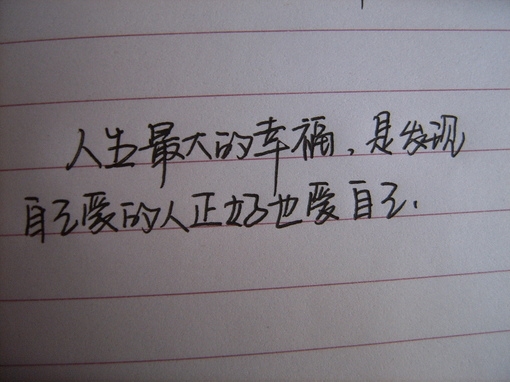 人生最大的幸福、是发现
自己爱的人正好也爱自己.